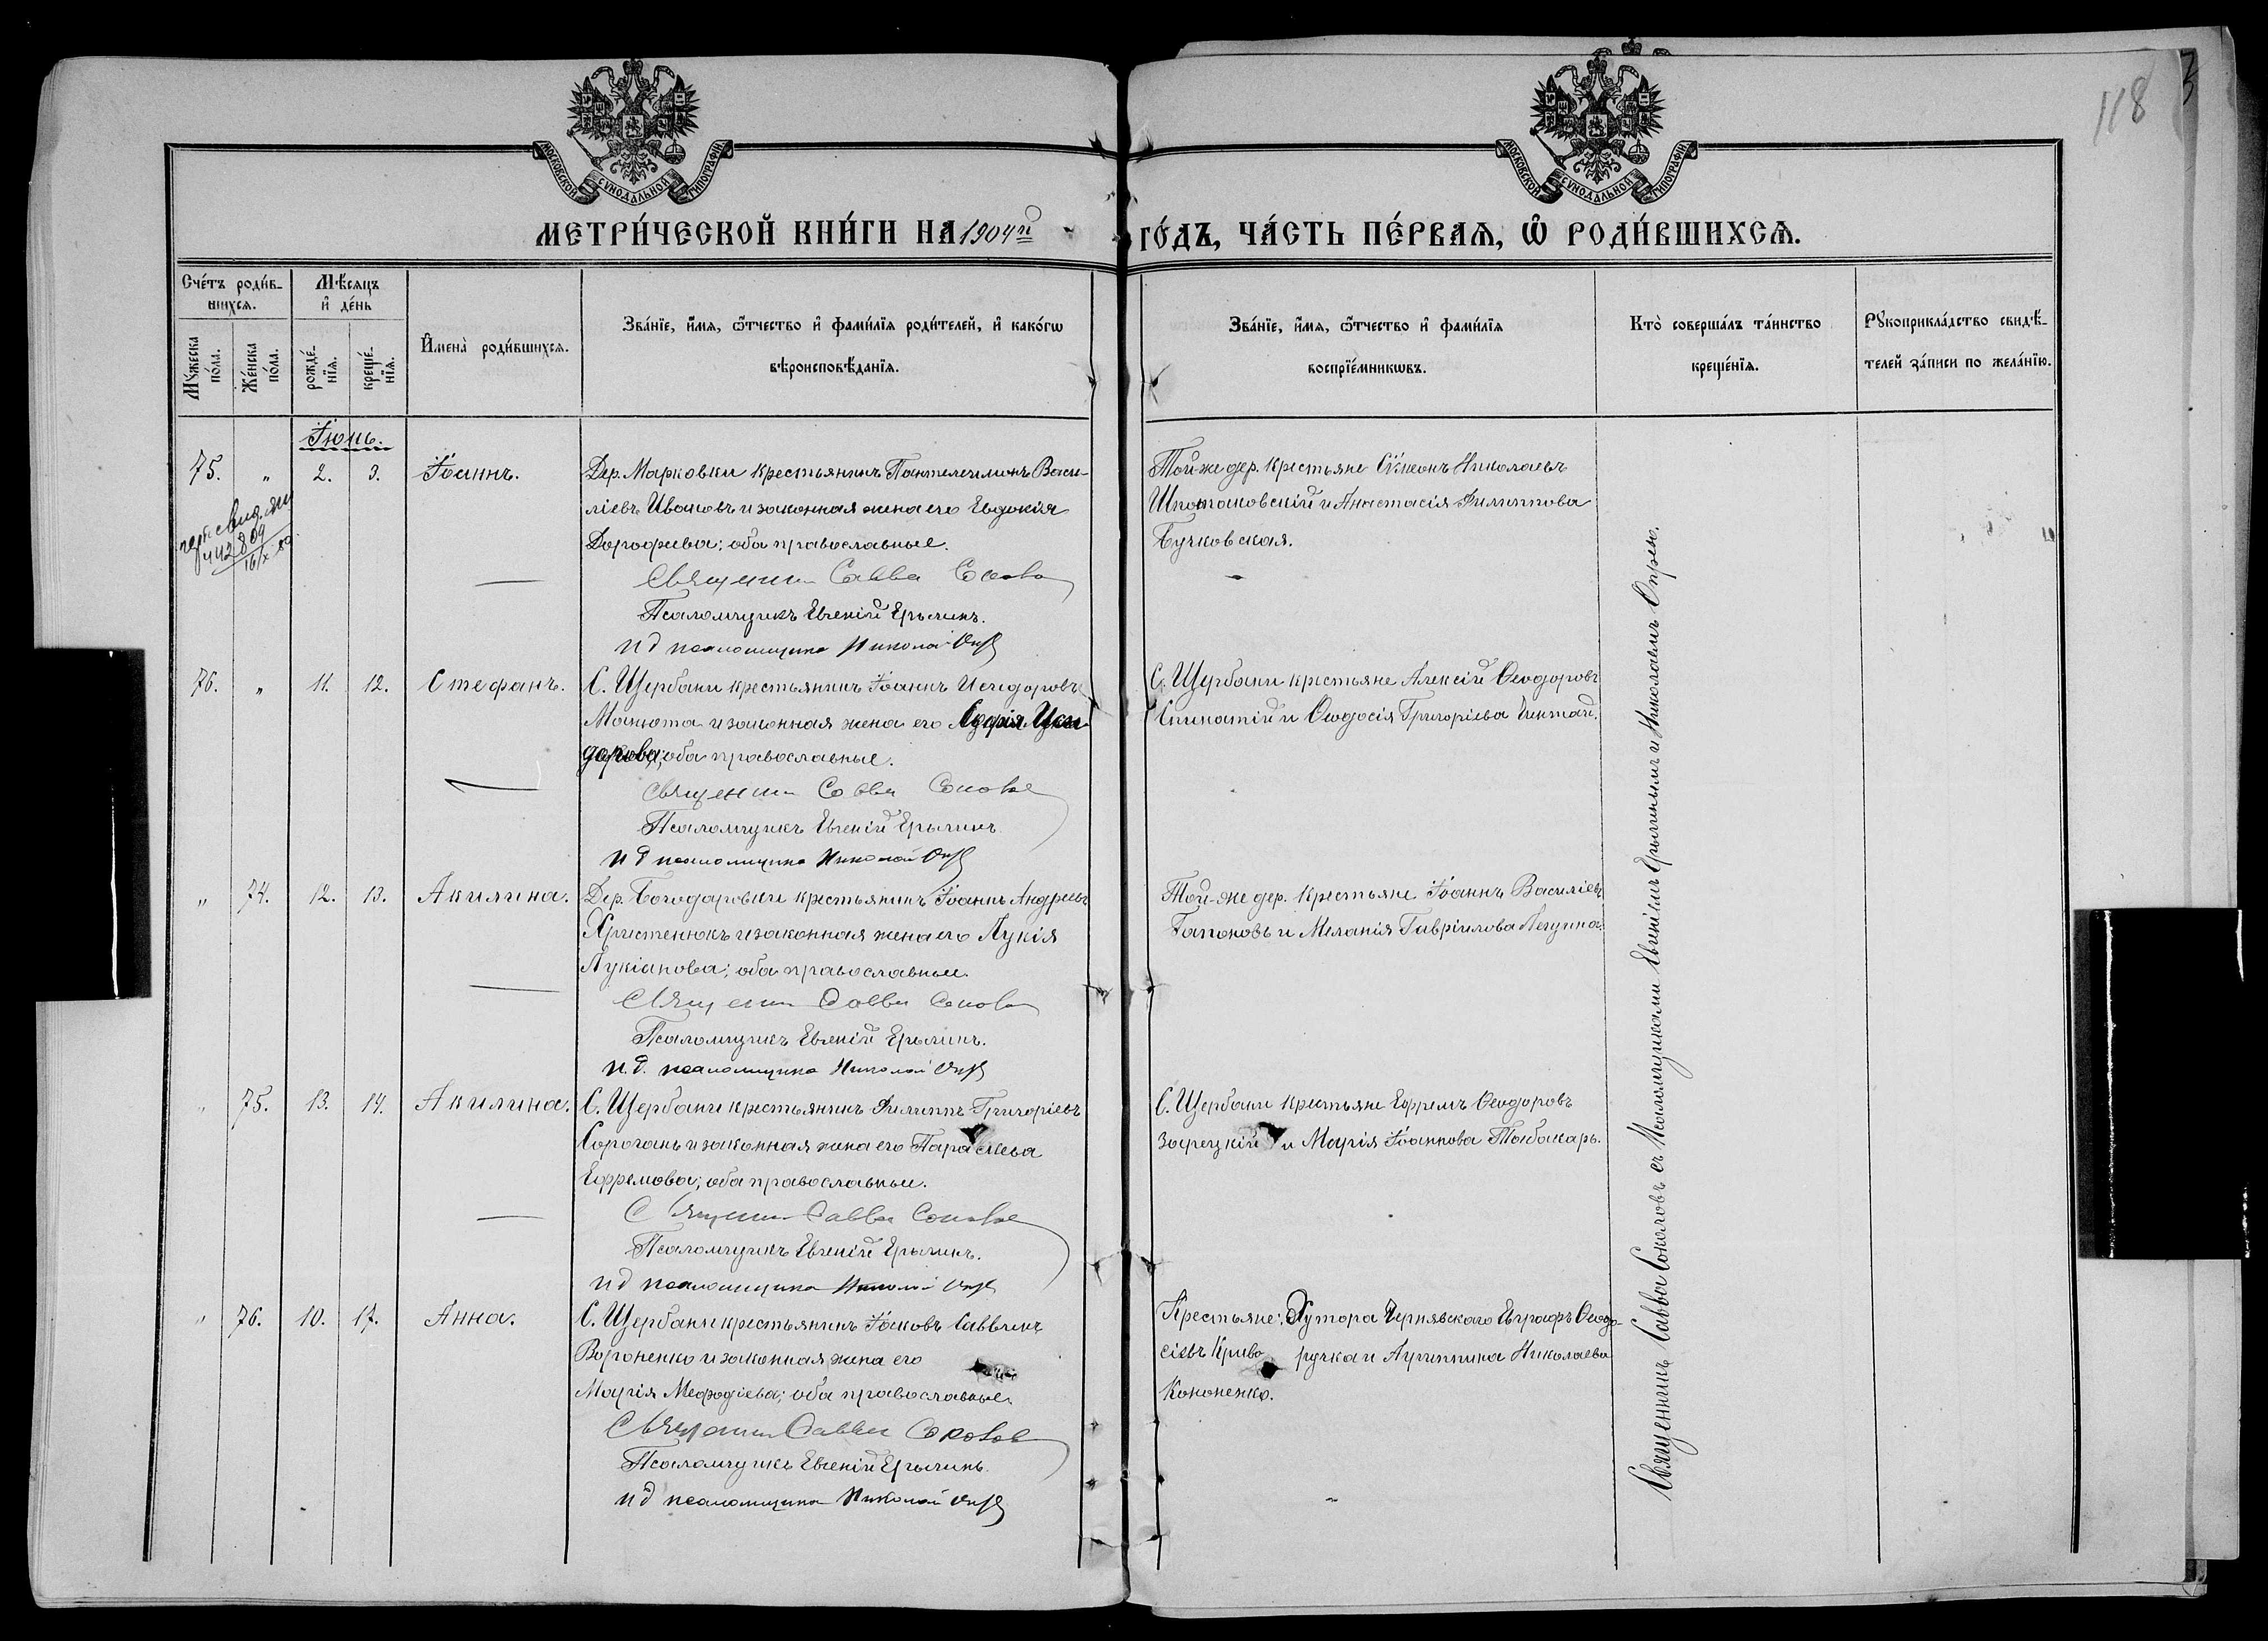 118
МОСКОВСКОЙ СѴНОДАЛЬНОЙ ТИПОГРАФІИ
МОСКОВСКОЙ СѴНОДАЛЬНОЙ ТИПОГРАФІИ
МЕТРИ́ЧЕСКОЙ КНИ́ГИ НА 1904й
ГО́ДЪ, ЧА́СТЬ ПЕ́РВАЯ, Ѡ҆ РОДИ́ВШИХСЯ.
Сче́тъ роди́в-
шихся.
Мѣ́сяцъ
и҆ де́нь
Мꙋ́жеска
по́ла.
Же́нска
по́ла.
рожде́-
нїя.
креще́-
нїя.
И҆мена̀ роди́вшихся.
Зва́нїе, и҆́мя, ѻ҆́тчество и҆ фами́лїя роди́телей, и҆ како́гѡ
вѣроисповѣ́данїя.
Зва́нїе, и҆́мя, ѻ҆́тчество и҆ фами́лїя
воспрїе́мникѡвъ.
Кто̀ соверша́лъ та́инство
креще́нїя.
Рꙋкоприкла́дство свидѣ́-
телей за́писи по жела́нїю.
Іюнь.
75. „ 2. 3. Іоаннъ.
Дер. Марковки крестьянинъ Пантелеимонъ Васи-
ліевъ Ивановъ и законная жена его Евдокія
Дорофеева; оба православные.
Священникъ Савва Соколов
Псаломщикъ Евгеній Ерыгинъ.
и д псаломщика Николай
Той-же дер. крестьяне Сѵмеонъ Николаевъ
Шпотаковскій и Анастасія Филиппова
Бучковская.
76. „ 11. 12. Стефанъ.
С. Щербани крестьянинъ Іоаннъ Исидоровъ
Манюта и законная жена его Исидорова
дорова; оба православные.
Священникъ Савва Соколов
Псаломщикъ Евгеній Ерыгинъ
и д псаломщика Николай
С. Щербани крестьяне Алексій Ѳеодоровъ
и Ѳеодосія Григоріева
„ 74. 12. 13. Акилина.
Дер. Богодаровки крестьянинъ Іоаннъ Андреевъ
Христенюкъ и законная жена его Лукія
Лукіанова; оба православные.
Священникъ Савва Соколов
Псаломщикъ Евгеній Ерыгинъ.
и. д. псаломщика Николай
Той-же дер. крестьяне Іоаннъ Василіевъ
Гапоновъ и Меланія Гавріилова
„ 75. 13. 14. Акилина.
С. Щербани крестьянинъ Филиппъ Григоріевъ
Сорочанъ и законная жена его Параскева
Ефремова; оба православные.
Священникъ Савва Соколов
Псаломщикъ Евгеній Ерыгинъ.
и д псаломщика Николай
С. Щербани крестьяне Ефремъ Ѳеодоровъ
Зарецкій и Марія Іоаннова Табакаръ.
„ 76. 10. 17. Анна.
С. Щербани крестьянинъ Іаковъ Саввинъ
Вороненко и законная жена его
Марія Меѳодіева; оба православные.
Священникъ Савва Соколов
Псаломщикъ Евгеній Ерыгинъ.
и д псаломщика Николай
Крестьяне: Хутора Чернявскаго Евграфъ Ѳеодо-
сіевъ Криворучка и Агриппина Николаева
Кононенко.
Священникъ Савва Соколовъ съ Псаломщиками Евгеніемъ Ерыгинымъ и Николаемъ